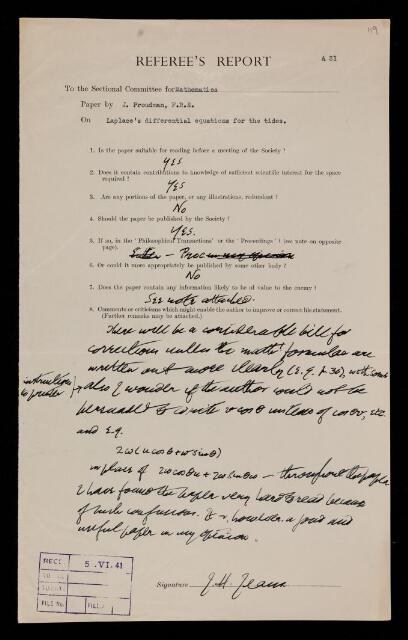 119
REFEREE'S REPORT
A 31
To the Sectional Committee for Mathematics
Paper by J. Proudman, F.R.S.
On Laplace's differential equations for the tides.
1. Is the paper suitable for reading before a meeting of the Society ?
YES
2. Does it contain contributions to knowledge of sufficient scientific interest for the space
required ?
YES
3. Are any portions of the paper, or any illustrations, redundant ?
No
4. Should the paper be published by the Society ?
YES.
5. If so, in the "Philosophical Transactions" or the "Proceedings" ? (see note on opposite
page).
Either – Proc in my opinion
6. Or could it more appropriately be published by some other body ?
No
7. Does the paper contain any information likely to be of value to the enemy ?
See note attached.
8. Comments or criticisms which might enable the author to improve or correct his statement.
(Further remarks may be attached.)
There will be a considerable bill for
corrections unless the math! formulae are
written out more clearly (E.g. p 30), with some
instructions
to printer
also I wonder if the author could not be
persuaded to write v cos θ instead of cos θ v, etc.
and E.g.
2ω(u cos θ + w sin θ)
in place of 2ω cos θ u + 2ω sin θ w – throughout the paper
I have found the paper very hard to read because
of such confusions. It is, however, a good and
useful paper in my opinion.
REC!
5 . VI. 41
FILE No.
Signature J. H. Jeans